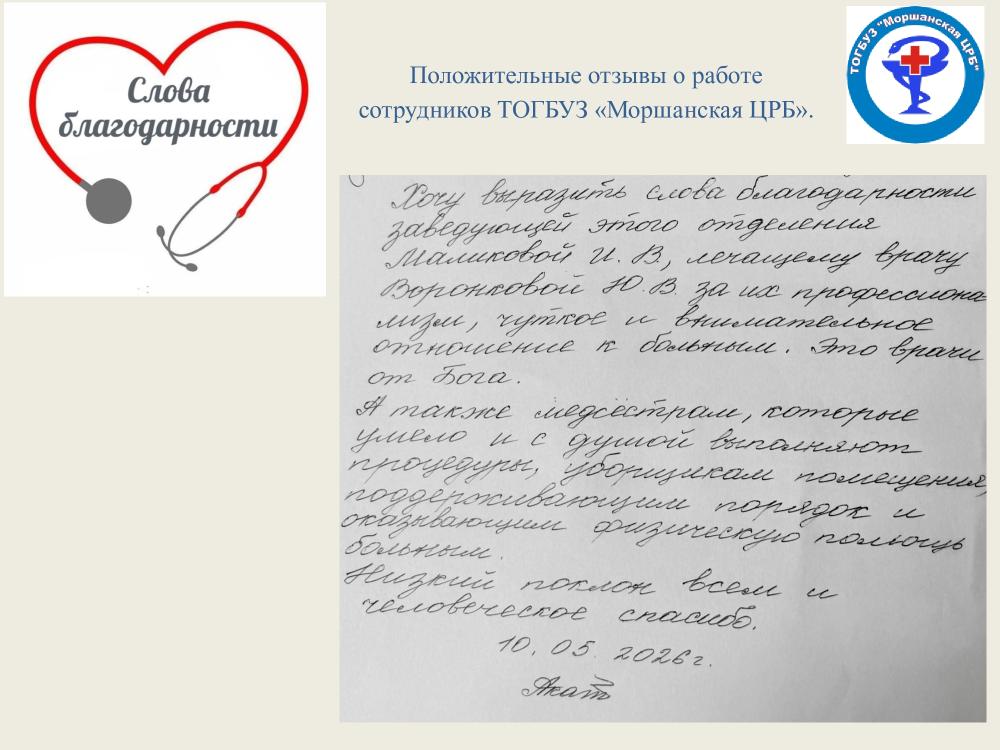 Слова
благодарности
Положительные отзывы о работе
сотрудников ТОГБУЗ «Моршанская ЦРБ».
ТОГБУЗ "Моршанская ЦРБ"
Хочу выразить слова благодарности
заведующей этого отделения
Маликовой И. В, лечащему врачу
Воронковой Ю. В. за их профессиона-
лизм, чуткое и внимательное
отношение к больным. Это врачи
от Бога.
А также медсёстрам, которые
умело и с душой выполняют
процедуры, уборщикам помещения,
поддерживающим порядок и
оказывающим физическую помощь
больным.
Низкий поклон всем и
человеческое спасибо.
10. 05. 2026г.